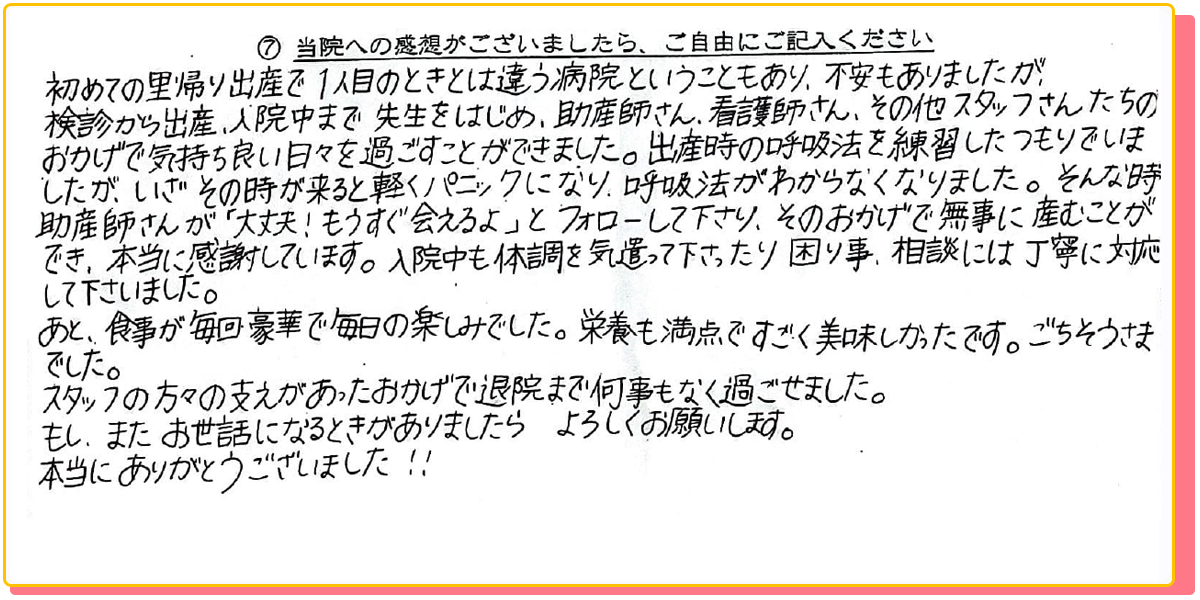 ⑦ 当院への感想がございましたら、ご自由にご記入ください
初めての里帰り出産で1人目のときとは違う病院ということもあり、不安もありましたが、
検診から出産、入院中まで 先生をはじめ、助産師さん、看護師さん、その他スタッフさんたちの
おかげで気持ち良い日々を過ごすことができました。出産時の呼吸法を練習したつもりでいま
したが、いざ その時が来ると軽くパニックになり、呼吸法がわからなくなりました。そんな時
助産師さんが「大丈夫!もうすぐ会えるよ」と フォローして下さり、そのおかげで無事に産むことが
でき、本当に感謝しています。入院中も体調を気遣って下さったり 困り事、相談には丁寧に対応
して下さいました。
あと、食事が毎回豪華で毎日の楽しみでした。栄養も満点ですごく美味しかったです。ごちそうさま
でした。
スタッフの方々の支えがあったおかげで退院まで何事もなく過ごせました。
もし、また お世話になるときがありましたら よろしくお願いします。
本当にありがとうございました!!